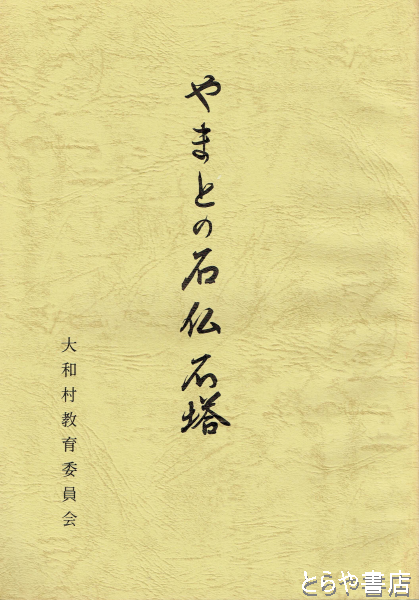 やまとの石仏石塔
大和村教育委員会
とらや書店